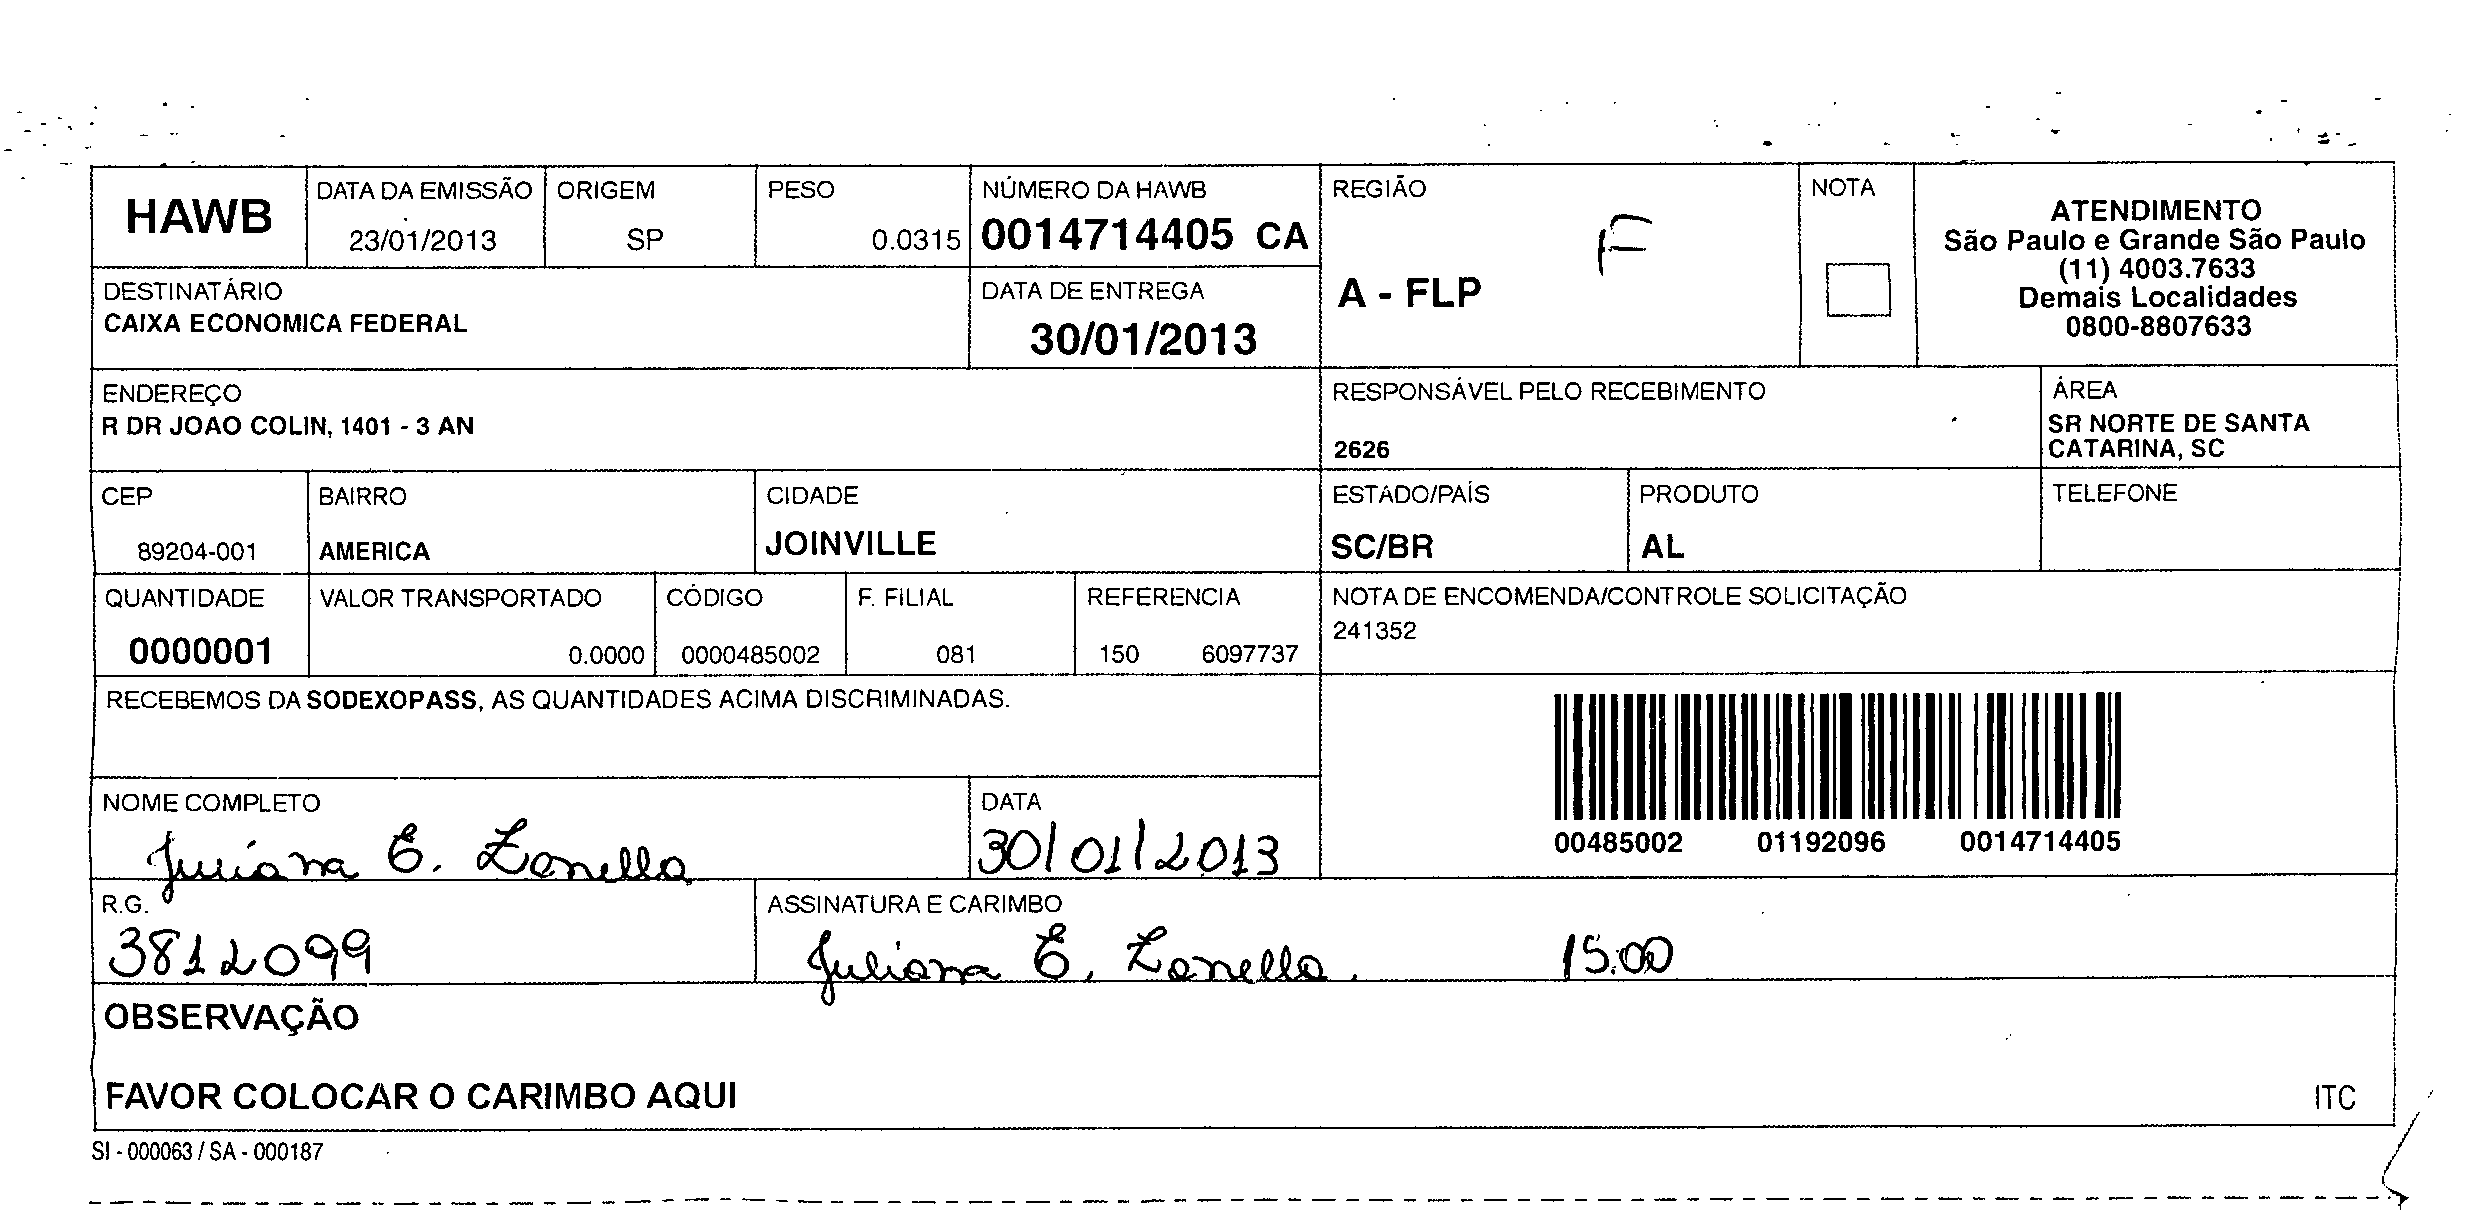 HAWB
DATA DA EMISSÃO
23/01/2013
ORIGEM
SP
PESO
0.0315
NÚMERO DA HAWB
0014714405 CA
REGIÃO
A - FLP
F
NOTA
ATENDIMENTO
São Paulo e Grande São Paulo
(11) 4003.7633
Demais Localidades
0800-8807633
DESTINATÁRIO
CAIXA ECONOMICA FEDERAL
DATA DE ENTREGA
30/01/2013
ENDEREÇO
R DR JOAO COLIN, 1401 - 3 AN
RESPONSÁVEL PELO RECEBIMENTO
2626
ÁREA
SR NORTE DE SANTA
CATARINA, SC
CEP
89204-001
BAIRRO
AMERICA
CIDADE
JOINVILLE
ESTADO/PAÍS
SC/BR
PRODUTO
AL
TELEFONE
QUANTIDADE
0000001
VALOR TRANSPORTADO
0.0000
CÓDIGO
0000485002
F. FILIAL
081
REFERENCIA
150 6097737
NOTA DE ENCOMENDA/CONTROLE SOLICITAÇÃO
241352
RECEBEMOS DA SODEXOPASS, AS QUANTIDADES ACIMA DISCRIMINADAS.
00485002 01192096 0014714405
NOME COMPLETO
Juliana E. Zanella
DATA
30/01/2013
R.G.
3812099
ASSINATURA E CARIMBO
Juliana E. Zanella. 15:00
OBSERVAÇÃO
FAVOR COLOCAR O CARIMBO AQUI
ITC
SI - 000063 / SA - 000187